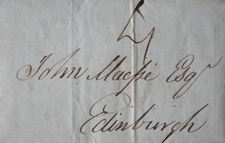 4
John Macfie Esqr
Edinburgh